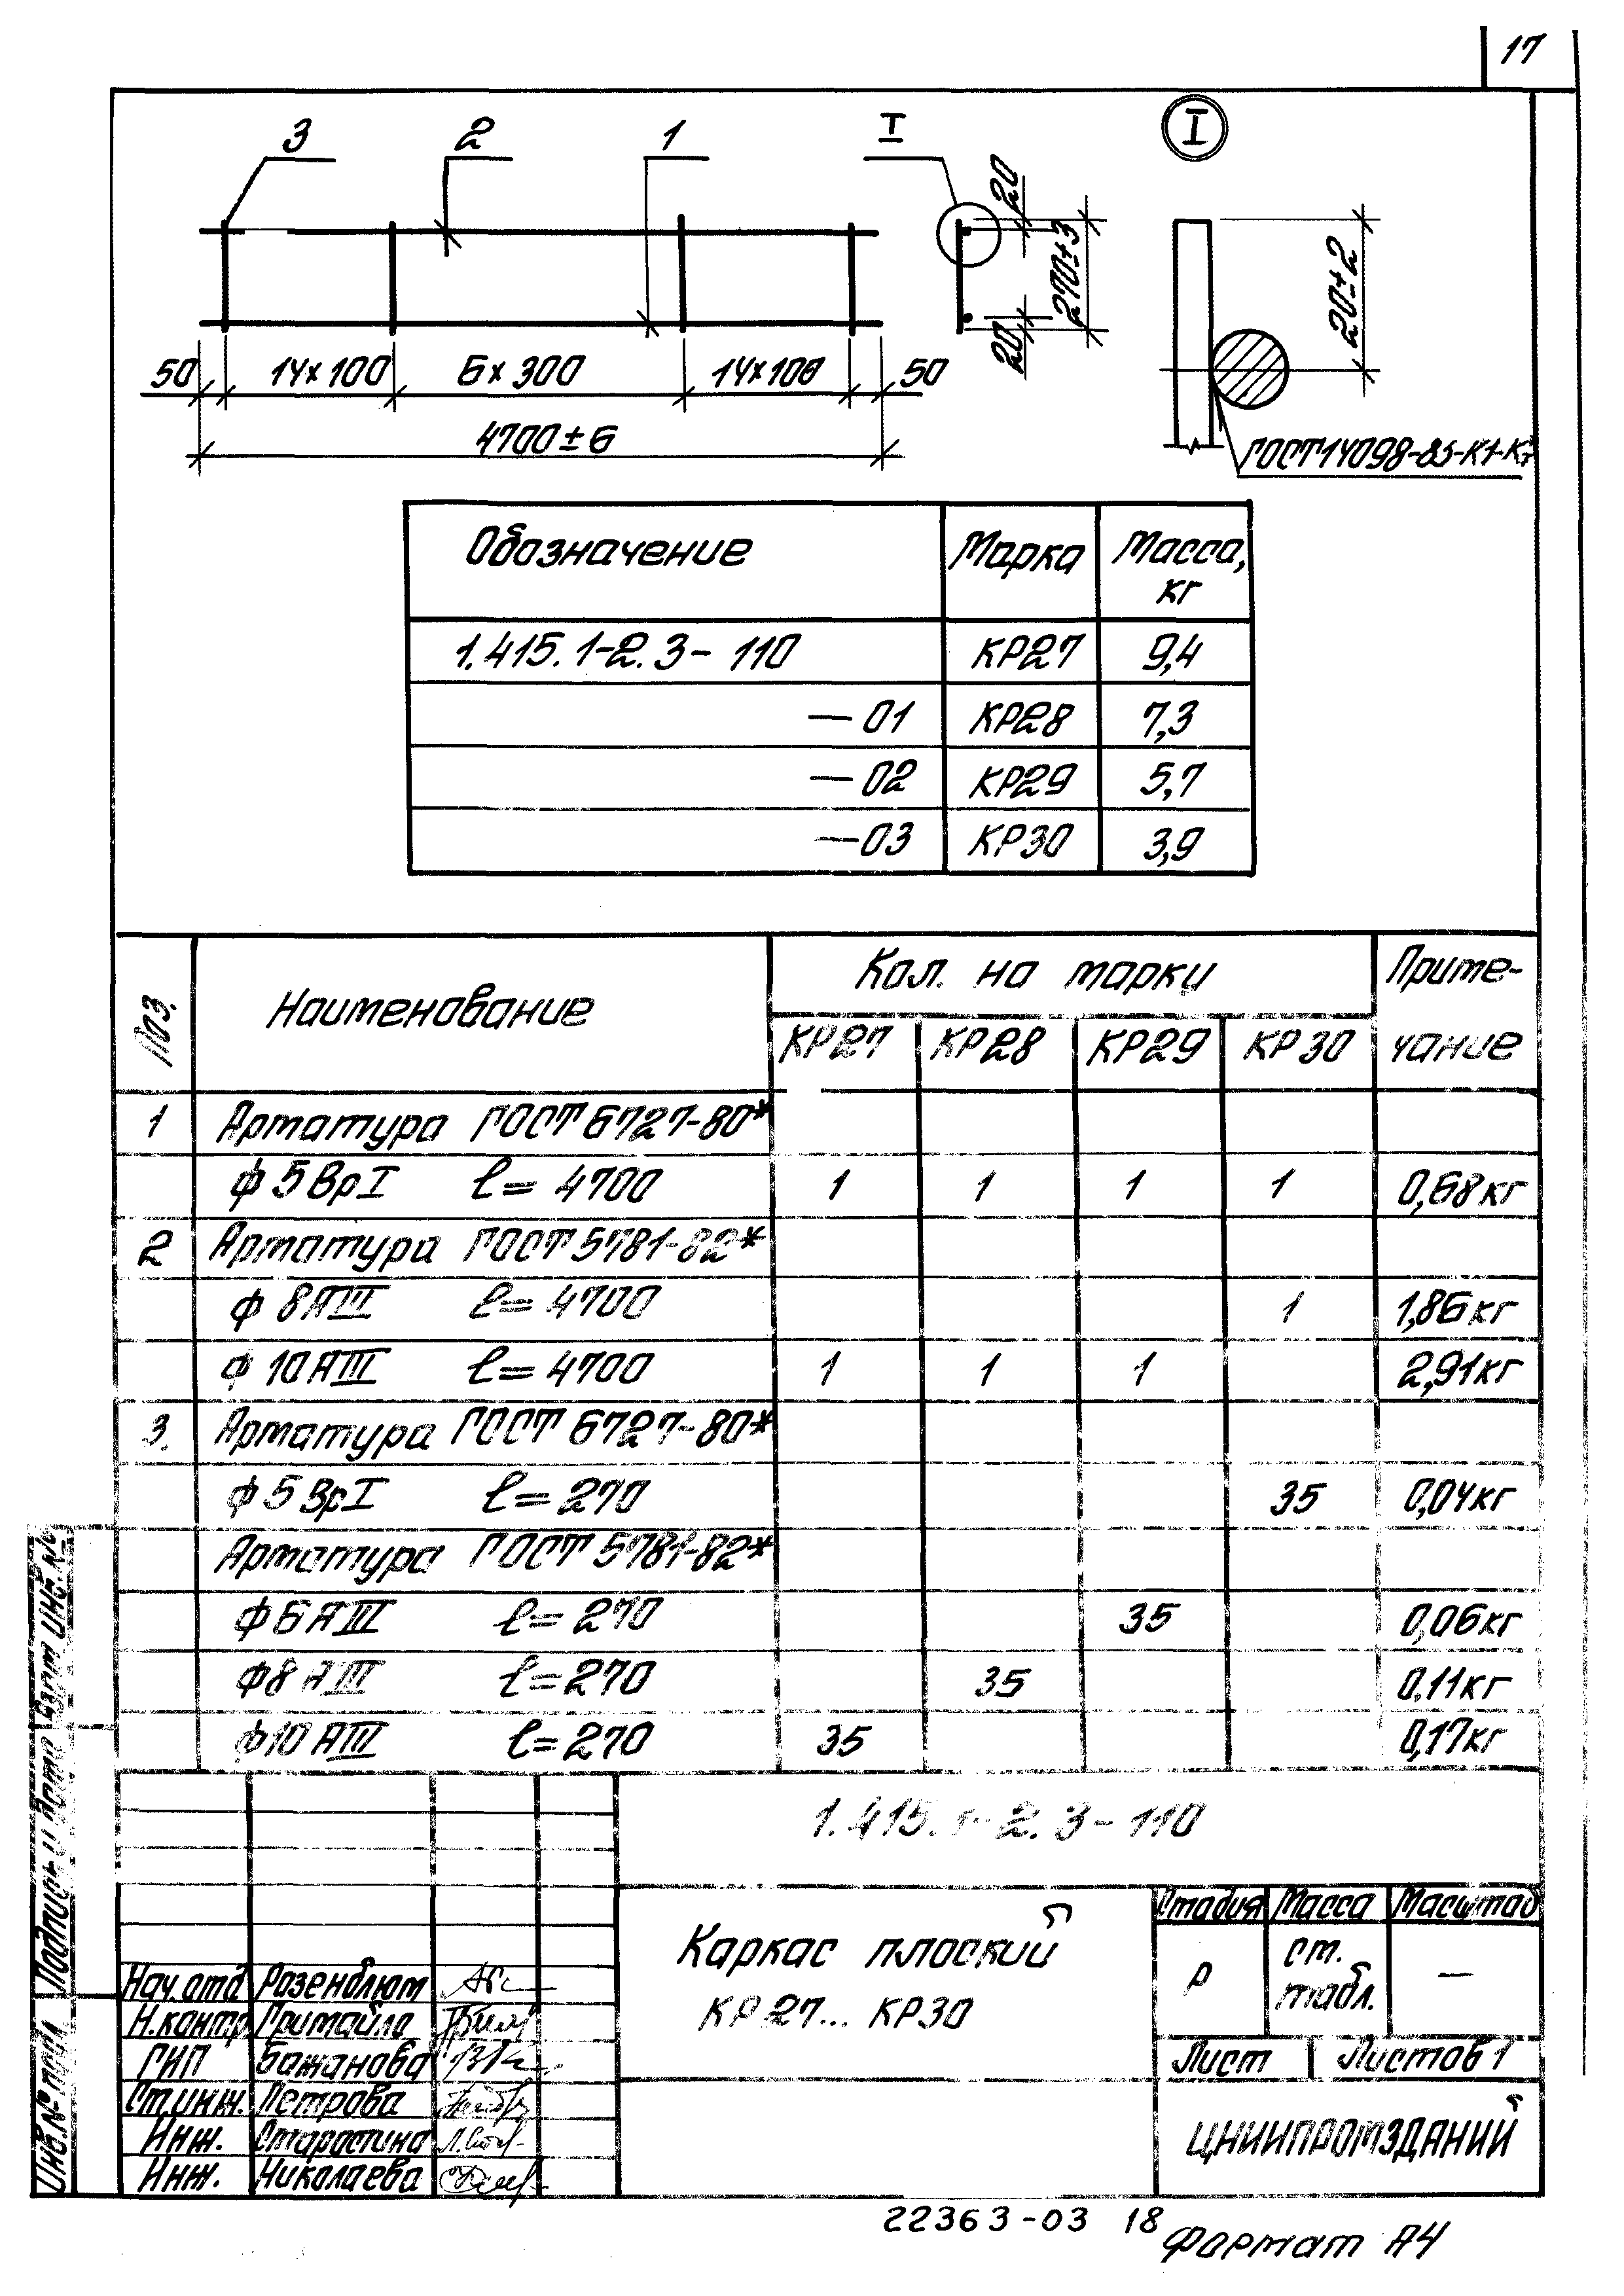 17
3 2 1 I I
20
270±3
20
20±2
50 14×100 6×300 14×100 50
4700±6
ГОСТ14098-85-К1-Кт
Обозначение Марка Масса, кг
1.415.1-2.3-110 КР27 9,4
—01 КР28 7,3
—02 КР29 5,7
—03 КР30 3,9
Поз. Наименование Кол. на марку Примечание
КР27 КР28 КР29 КР30
1 Арматура ГОСТ 6727-80*
ф5ВрI ℓ=4700 1 1 1 1 0,68кг
2 Арматура ГОСТ 5781-82*
ф8АIII ℓ=4700 1 1,86кг
ф10АIII ℓ=4700 1 1 1 2,91кг
3. Арматура ГОСТ 6727-80*
ф5ВрI ℓ=270 35 0,04кг
Арматура ГОСТ 5781-82*
ф6АIII ℓ=270 35 0,06кг
ф8АIII ℓ=270 35 0,11кг
ф10АIII ℓ=270 35 0,17кг
1.415.1-2.3-110
Каркас плоский
КР27... КР30
Стадия Масса Масштаб
Р ст. табл. —
Лист Листов 1
ЦНИИПРОМЗДАНИЙ
Нач.отд Розенблюм
Н.контр Гримайло
ГИП Бажанова
Ст.инж. Петрова
Инж. Старостина
Инж. Николаева
Инв.№ подл. Подпись и дата Взам.инв.№
22363-03 18
Формат А4